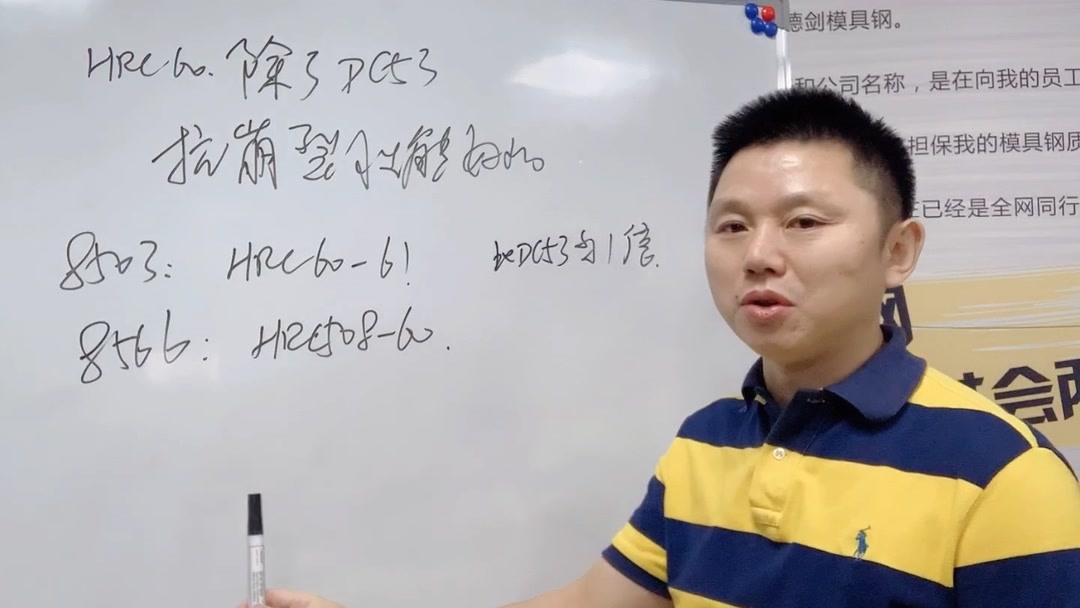 HRC60.除了DC53
抗崩裂性能好的
8503: HRC60-61 比DC53高1倍.
8566: HRC58-60.
德剑模具钢。
和公司名称，是在向我的员工
担保我的模具钢质
已经是全网同行
网
会两